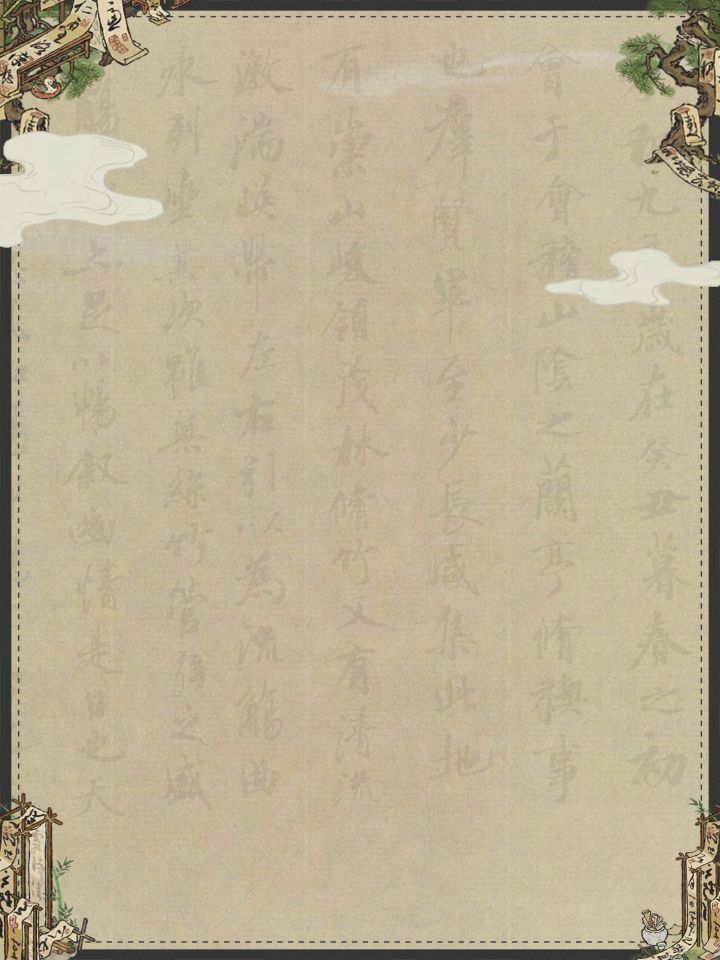 和九年歲在癸丑暮春之初
會于會稽山陰之蘭亭脩禊事
也羣賢畢至少長咸集此地
有崇山峻領茂林脩竹又有清流
激湍暎帶左右引以為流觴曲
水列坐其次雖無絲竹管弦之盛
觴亦足以暢敘幽情是日也天